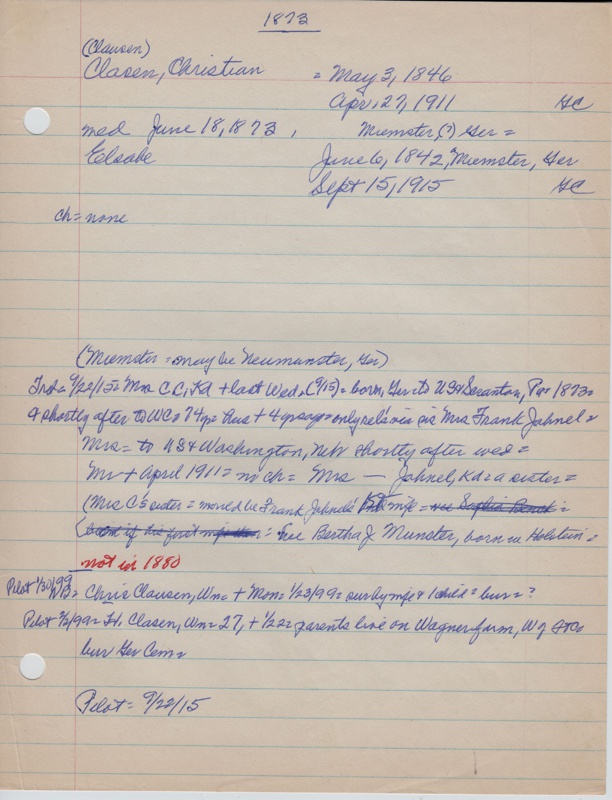 1873
(Clausen)
Clasen, Christian = May 3, 1846
Apr. 27, 1911 GC
med June 18, 1873, Miemster (?) Ger =
Elsabe June 6, 1842, Miemster, Ger
Sept 15, 1915 GC
ch = none
(Miemster = may be Neumunster, Ger)
9/22/15 = Mrs C C, Kd + last Wed. (9/15) = born Ger to US & Scranton, Pa = 1873 =
& shortly after to WC = 74 yr = Hus + 4 yrs ago = only rel's vic is Mrs Frank Jahnel =
Mrs = to US & Washington, Neb shortly after wed =
Mr + April 1911 = no ch = Mrs — Jahnel, Kd = a sister =
(Mrs C's sister = moved be Frank Jahnels' 1st wife = nee Sophia =
(born if his first wife then = nee Bertha J Munster, born in Holstein =
not in 1880
Pilot 1/30/99 = Chris Clausen, Wn = + Mon = 1/23/99 = sur by wife & 1 child = bur = ?
Pilot 2/2/99 = H. Clasen, Wn = 27, + 1/22 = parents live on Wagner farm, W of
bur Ger Cem =
Pilot = 9/22/15